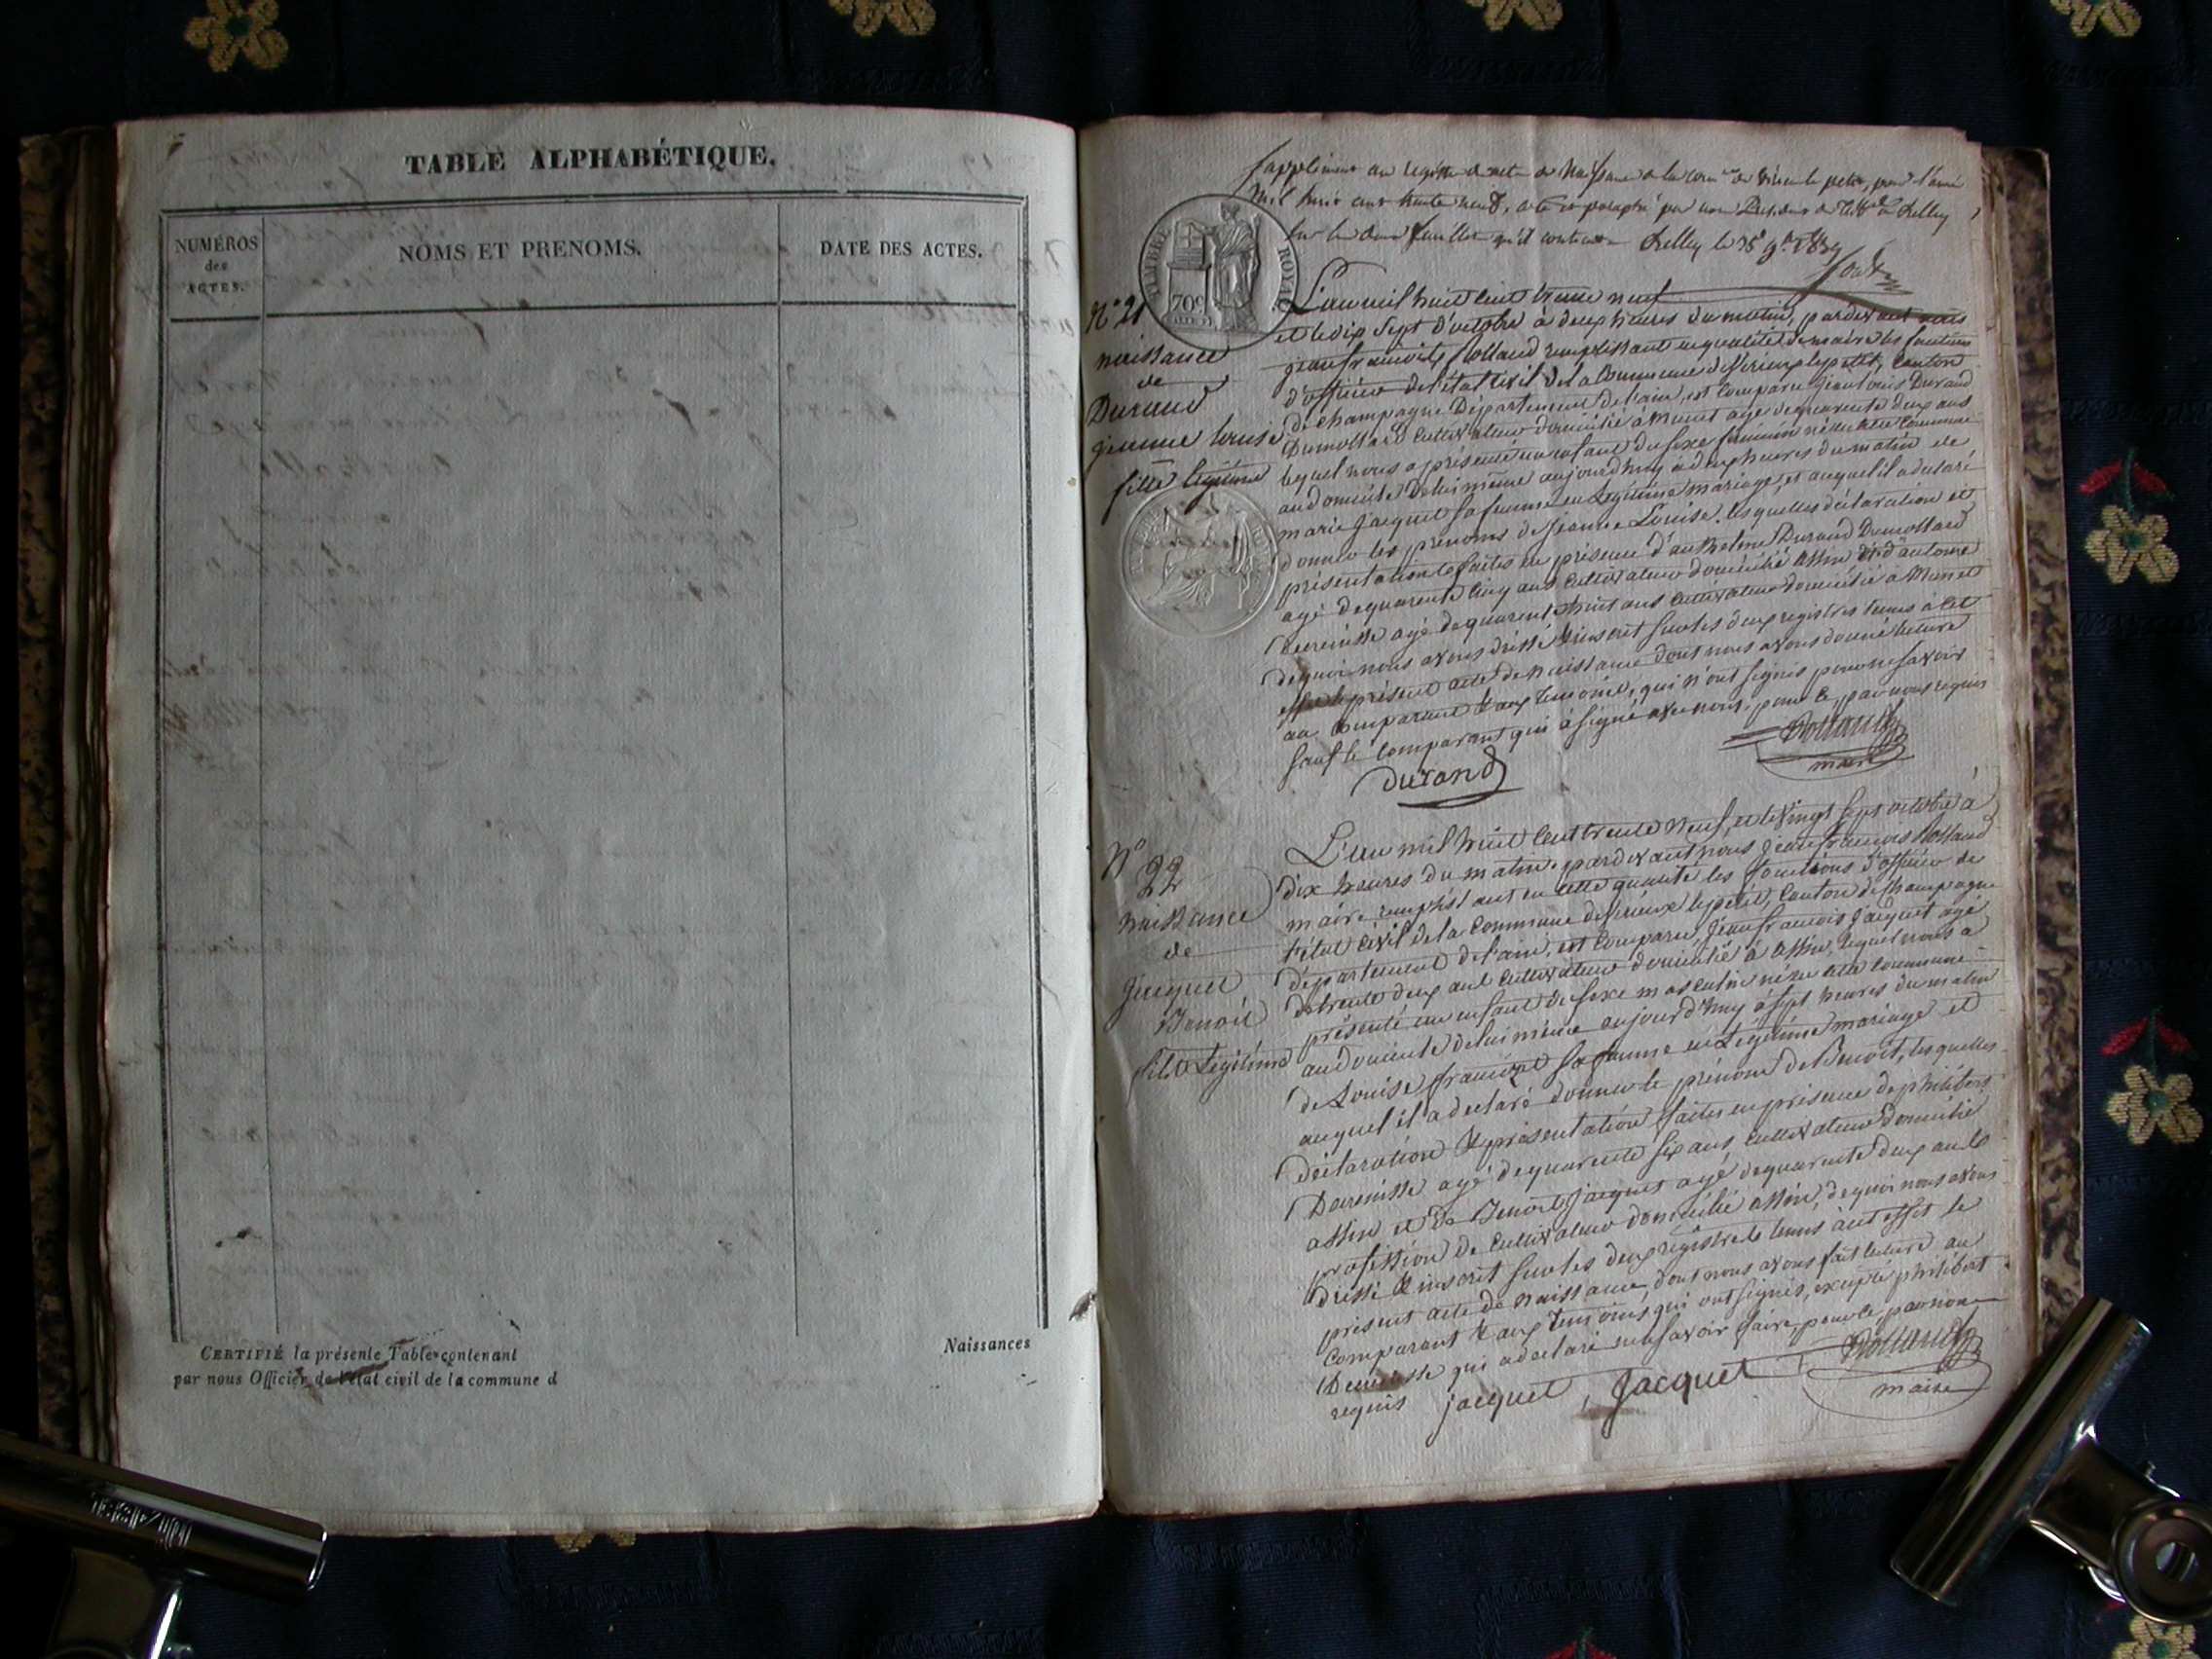 TABLE ALPHABÉTIQUE.
NUMÉROS
des
ACTES.
NOMS ET PRENOMS.
DATE DES ACTES.
CERTIFIÉ la présente Table contenant
par nous Officier de l'état civil de la commune d
Naissances
Supplément au registre de naissance de la com de virieu le petit, pour l'année
Mil huit cent trente neuf, coté et paraphé par nous Président du de Belley
sur les deux feuillets qu'il contient Belley le 1839
TIMBRE ROYAL
70c
N° 21
naissance
de
Durand
jeanne louise
fille légitime
L'an mil huit cent trente neuf
et le dix sept d'octobre à deux heures du matin, pardevant nous
jean françois Rolland remplissant en qualité de maire les fonctions
d'officier de l'état civil de la Commune de virieux le petit, Canton
de champagne Département de l'ain, est Comparu jean louis Durand
Dumollard Cultivateur domicilié à Munet agé de quarente deux ans
lequel nous a présenté un enfant du sexe feminin né sur cette Commune
au domicile de lui même aujourd'huy à deux heures du matin de
marie Jacquet sa femme en Légitime mariage, et auquel il a declaré
donner les prénoms de Jeanne Louise. lesquelles déclaration et
présentation faites en présence d'anthelme Durand Dumollard
agé de quarente cinq ans Cultivateur domicilié assin & d'antoine
agé de quarente huit ans Cultivateur domicilié à Munet
de quoi nous avons dressé & inscrit sur les deux registres tenus à cet
effet le présent acte de naissance dont nous avons donné lecture
au Comparant & aux temoins, qui n'ont signés pour ne savoir
sauf le Comparant qui à signé avec nous, pour ce par nous requis
durand
Rolland
maire
N°
22
naissance
de
Jacquet
Benoit
fils Légitime
L'an mil huit Cent trente neuf, et le vingt sept octobre à
dix heures du matin, pardevant nous Jean françois Rolland
maire remplissant en cette qualité les fonctions d'officier de
l'état civil de la Commune de virieux le petit, Canton de Champagne
département de l'ain, est Comparu, Jean francois jacquet agé
de trente deux ans Cultivateur domicilié à assin, lequel nous a
présenté un enfant du sexe masculin né sur cette Commune
au domicile de lui même aujourd'huy à sept heures du matin
de Louise sa femme en Légitime mariage et
auquel il a declaré donner le prénom de Benoit, lesquelles
déclaration & présentation faites en présence de philibert
agé de quarente six ans, cultivateur domicilié
assin et de Benoit jacquet agé de quarente deux ans
profession de Cultivateur domicilié assin, de quoi nous avons
dressé & inscrit sur les deux registres tenus à cet effet le
présent acte de naissance, dont nous avons fait lecture au
Comparant & aux temoins, qui ont signés, excepté philibert
qui a declaré ne savoir faire, pour ce par nous
requis jacquet, Jacquet
Rolland
maire